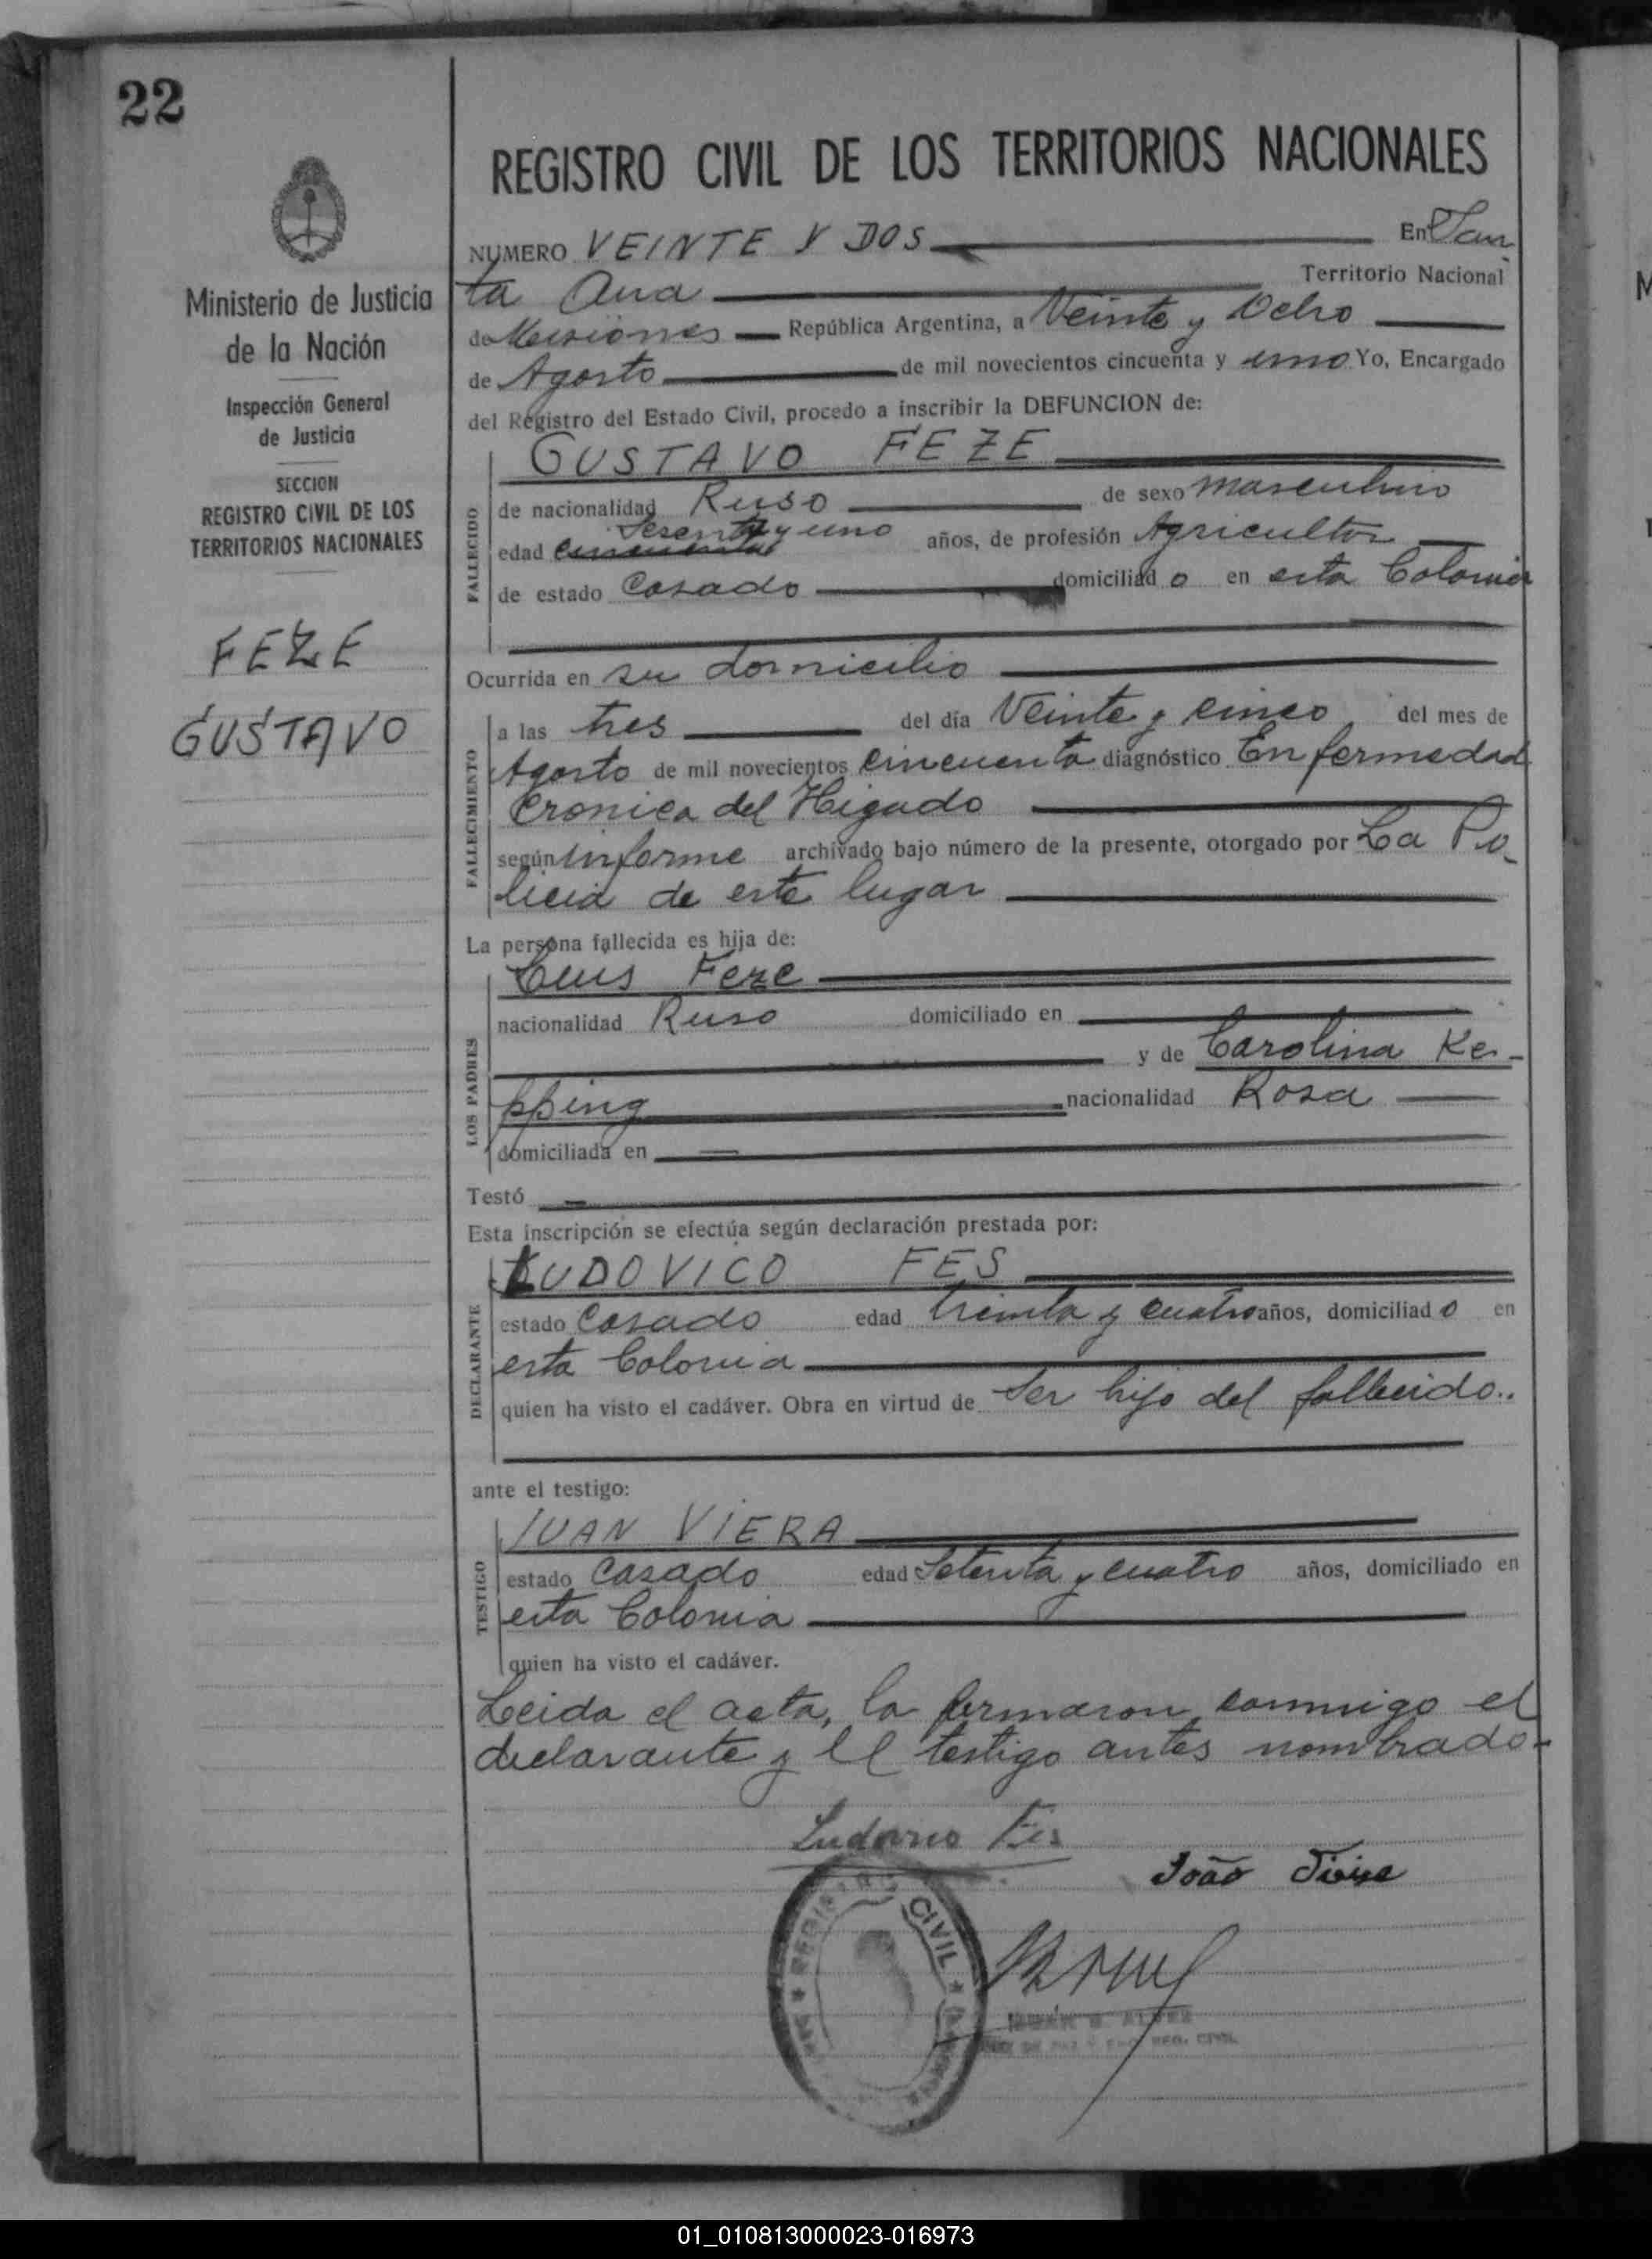 22
Ministerio de Justicia
de la Nación
Inspección General
de Justicia
SECCION
REGISTRO CIVIL DE LOS
TERRITORIOS NACIONALES
FEZE
GUSTAVO
REGISTRO CIVIL DE LOS TERRITORIOS NACIONALES
NUMERO VEINTE Y DOS En San
ta Ana Territorio Nacional
de Misiones República Argentina, a Veinte y Ocho
de Agosto de mil novecientos cincuenta y uno Yo, Encargado
del Registro del Estado Civil, procedo a inscribir la DEFUNCION de:
GUSTAVO FEZE
FALLECIDO
de nacionalidad Ruso de sexo masculino
Sesenta y uno
edad cincuenta años, de profesión Agricultor
de estado Casado domiciliado en esta Colonia
Ocurrida en su domicilio
FALLECIMIENTO
a las tres del día Veinte y cinco del mes de
Agosto de mil novecientos cincuenta diagnóstico Enfermedad
Cronica del Higado
según informe archivado bajo número de la presente, otorgado por La Po-
licia de este lugar
La persona fallecida es hija de:
LOS PADRES
Luis Feze
nacionalidad Ruso domiciliado en
y de Carolina Ke-
pping nacionalidad Rosa
domiciliada en
Testó
Esta inscripción se efectúa según declaración prestada por:
DECLARANTE
LUDOVICO FES
estado Casado edad treinta y cuatro años, domiciliado en
esta Colonia
quien ha visto el cadáver. Obra en virtud de Ser hijo del fallecido..
ante el testigo:
TESTIGO
JUAN VIERA
estado Casado edad Setenta y cuatro años, domiciliado en
esta Colonia
quien ha visto el cadáver.
Leida el acta, la firmaron conmigo el
declarante y el testigo antes nombrado.-
Ludovico Fes
João
REGISTRO CIVIL
REG. CIVIL
01_010813000023-016973